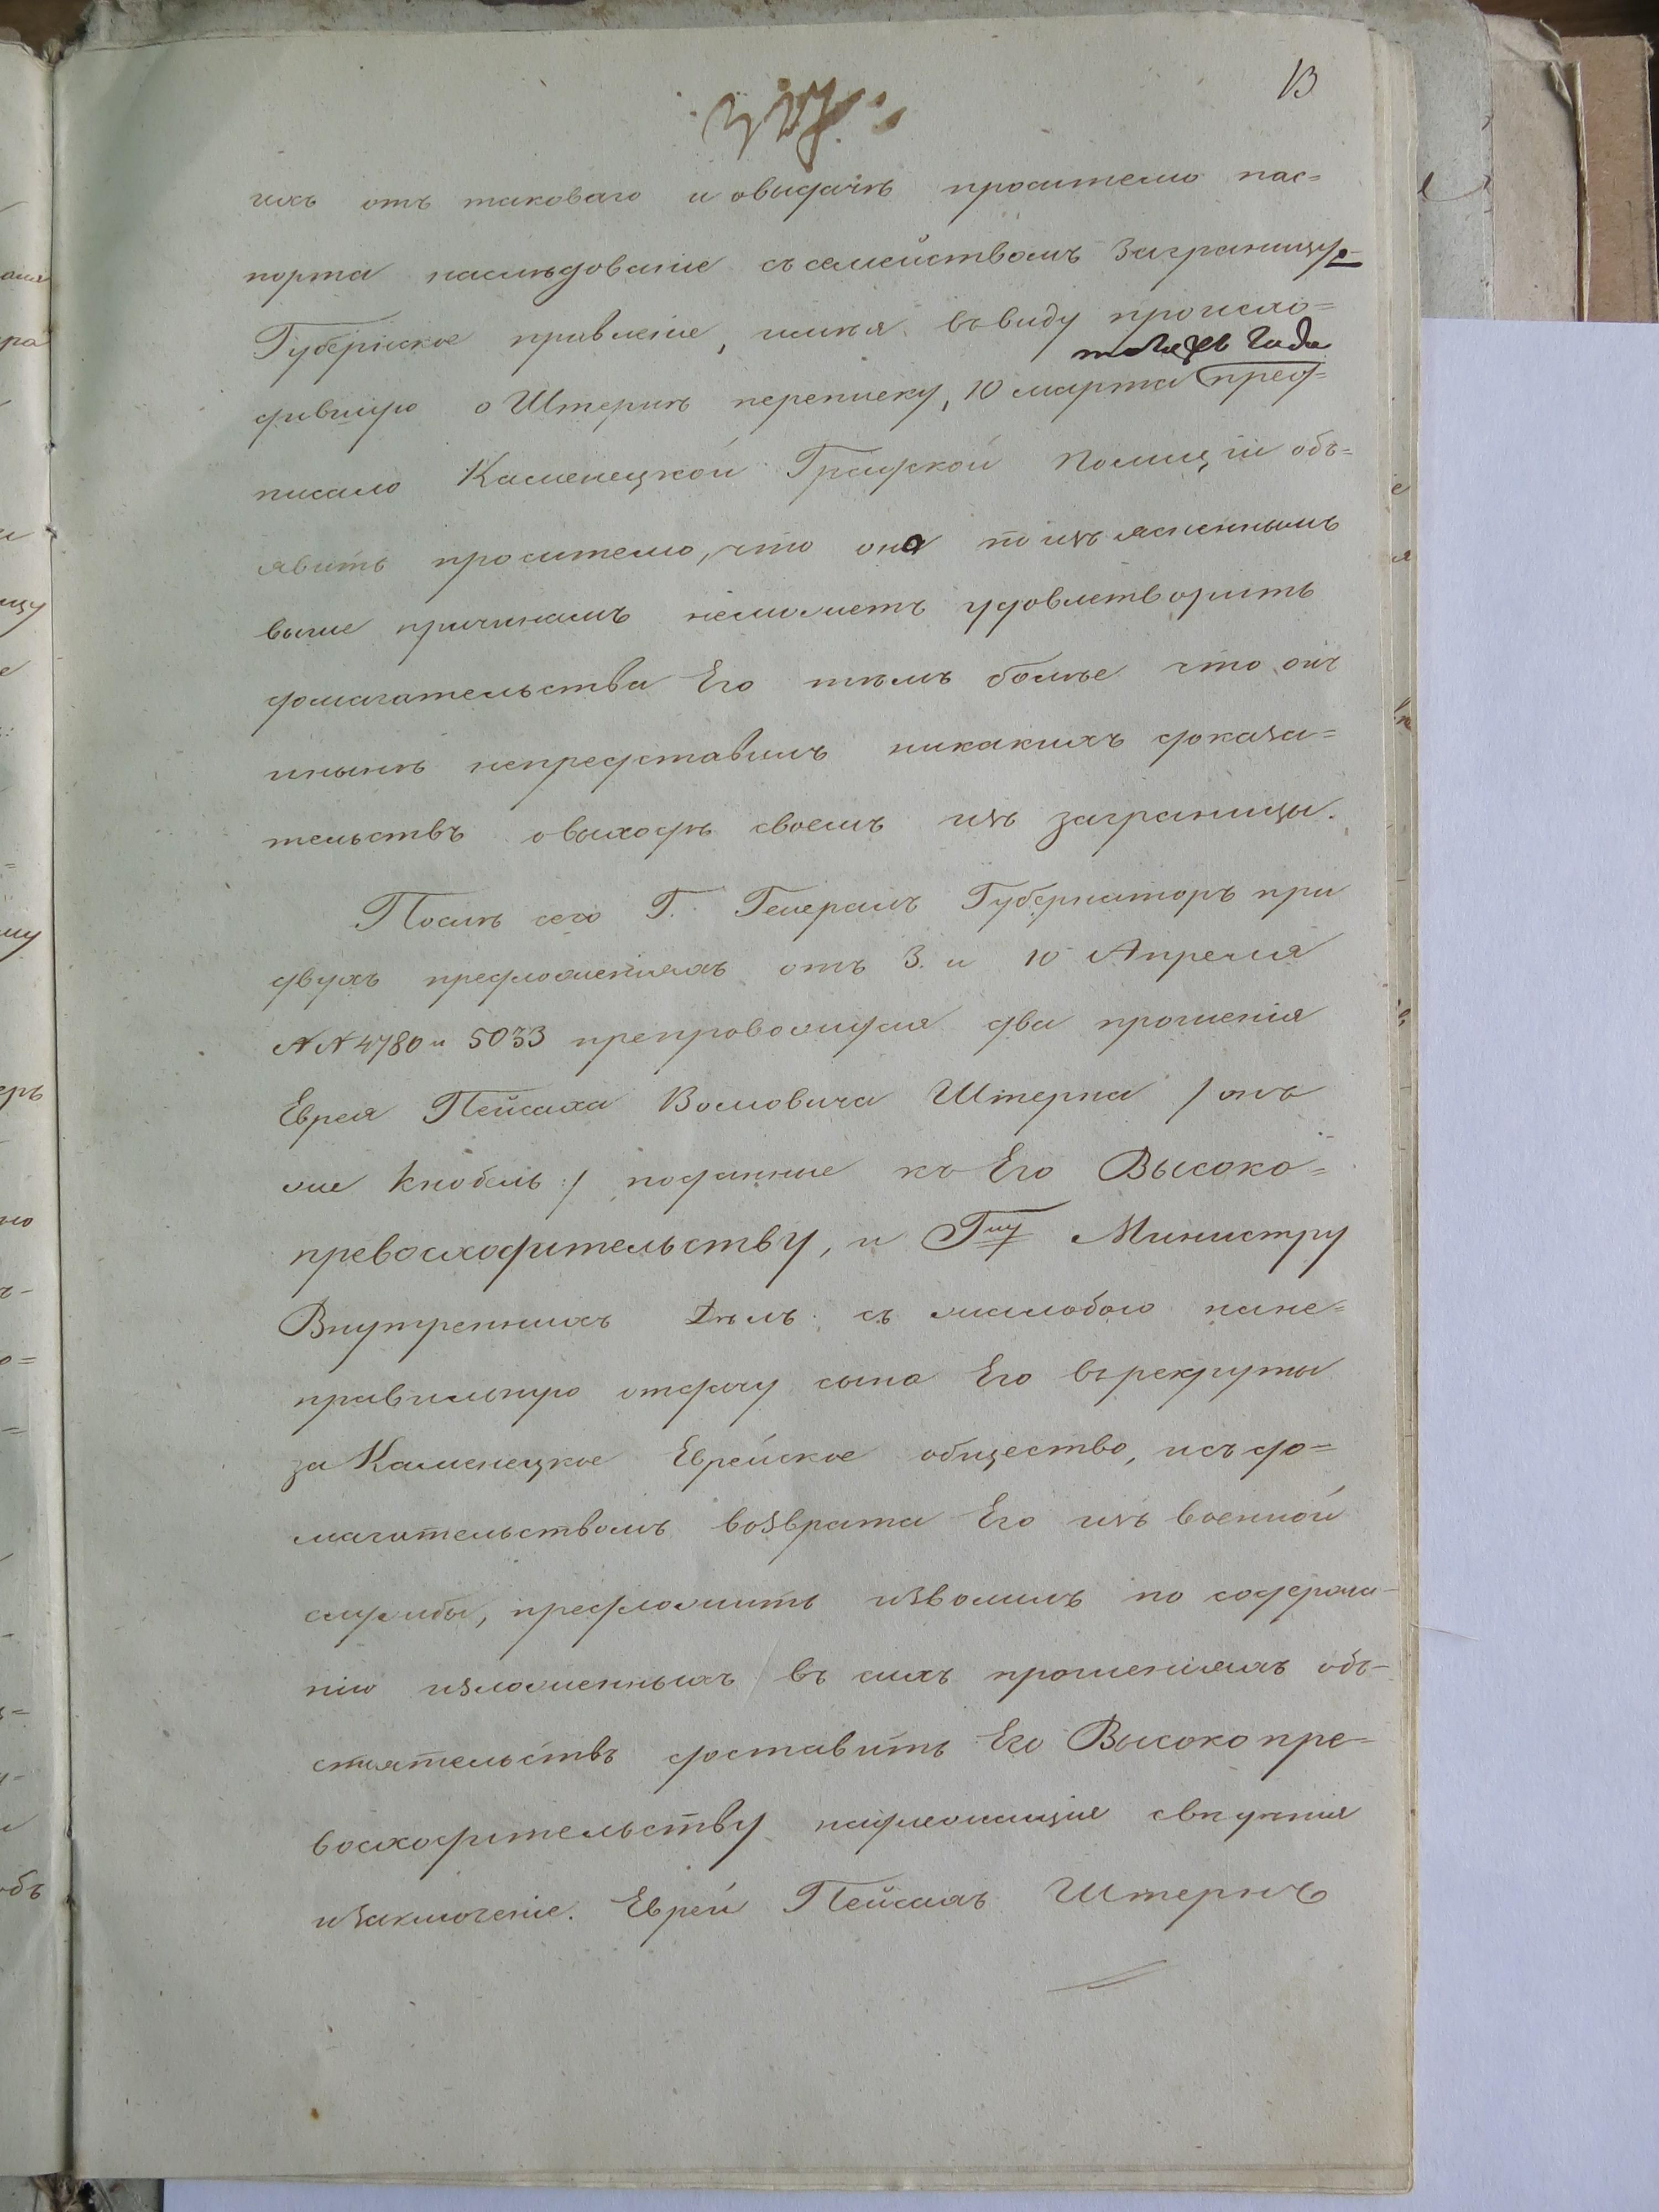 13
ихъ отъ таковаго и овыдачѣ просителю пас=
порта наслѣдованіе съ семействомъ Заграницу.
Губернское правленіе, имѣя въ виду происхо=
того же года
дившую о Штернѣ переписку, 10 марта пред=
писало Каменецкой Градской Полиціи объ=
явить просителю, что оно по изъясненнымъ
выше причинамъ неможетъ удовлетворить
домагательства Его тѣмъ болѣе что онъ
инынѣ непредставилъ никакихъ доказа=
тельствъ овыходѣ своемъ изъ заграницы.
Послѣ сего Г. Генералъ Губернаторъ при
двухъ предложеніяхъ отъ 3. и 10 Апреля
№№ 4780 и 5033 препровождая два прошенія
Еврея Пейсаха Волковича Штерна / онъ
же Кнобель :/ поданные къ Его Высоко=
превосходительству, и Гну Министру
Внутреннихъ Дѣлъ съ жалобою нане=
правильную отдачу сына Его въ рекруты
за Каменецкое Еврейское общество, исъ до=
магательствомъ возврата Его изъ военной
службы, предложить изволилъ по содержа-
нію изложенныхъ въ сихъ прошеніяхъ объ-
стоятельствъ доставить Его Высокопре-
восходительству надлежащія свѣдѣнія
изаключеніе. Еврей Пейсахъ Штернъ